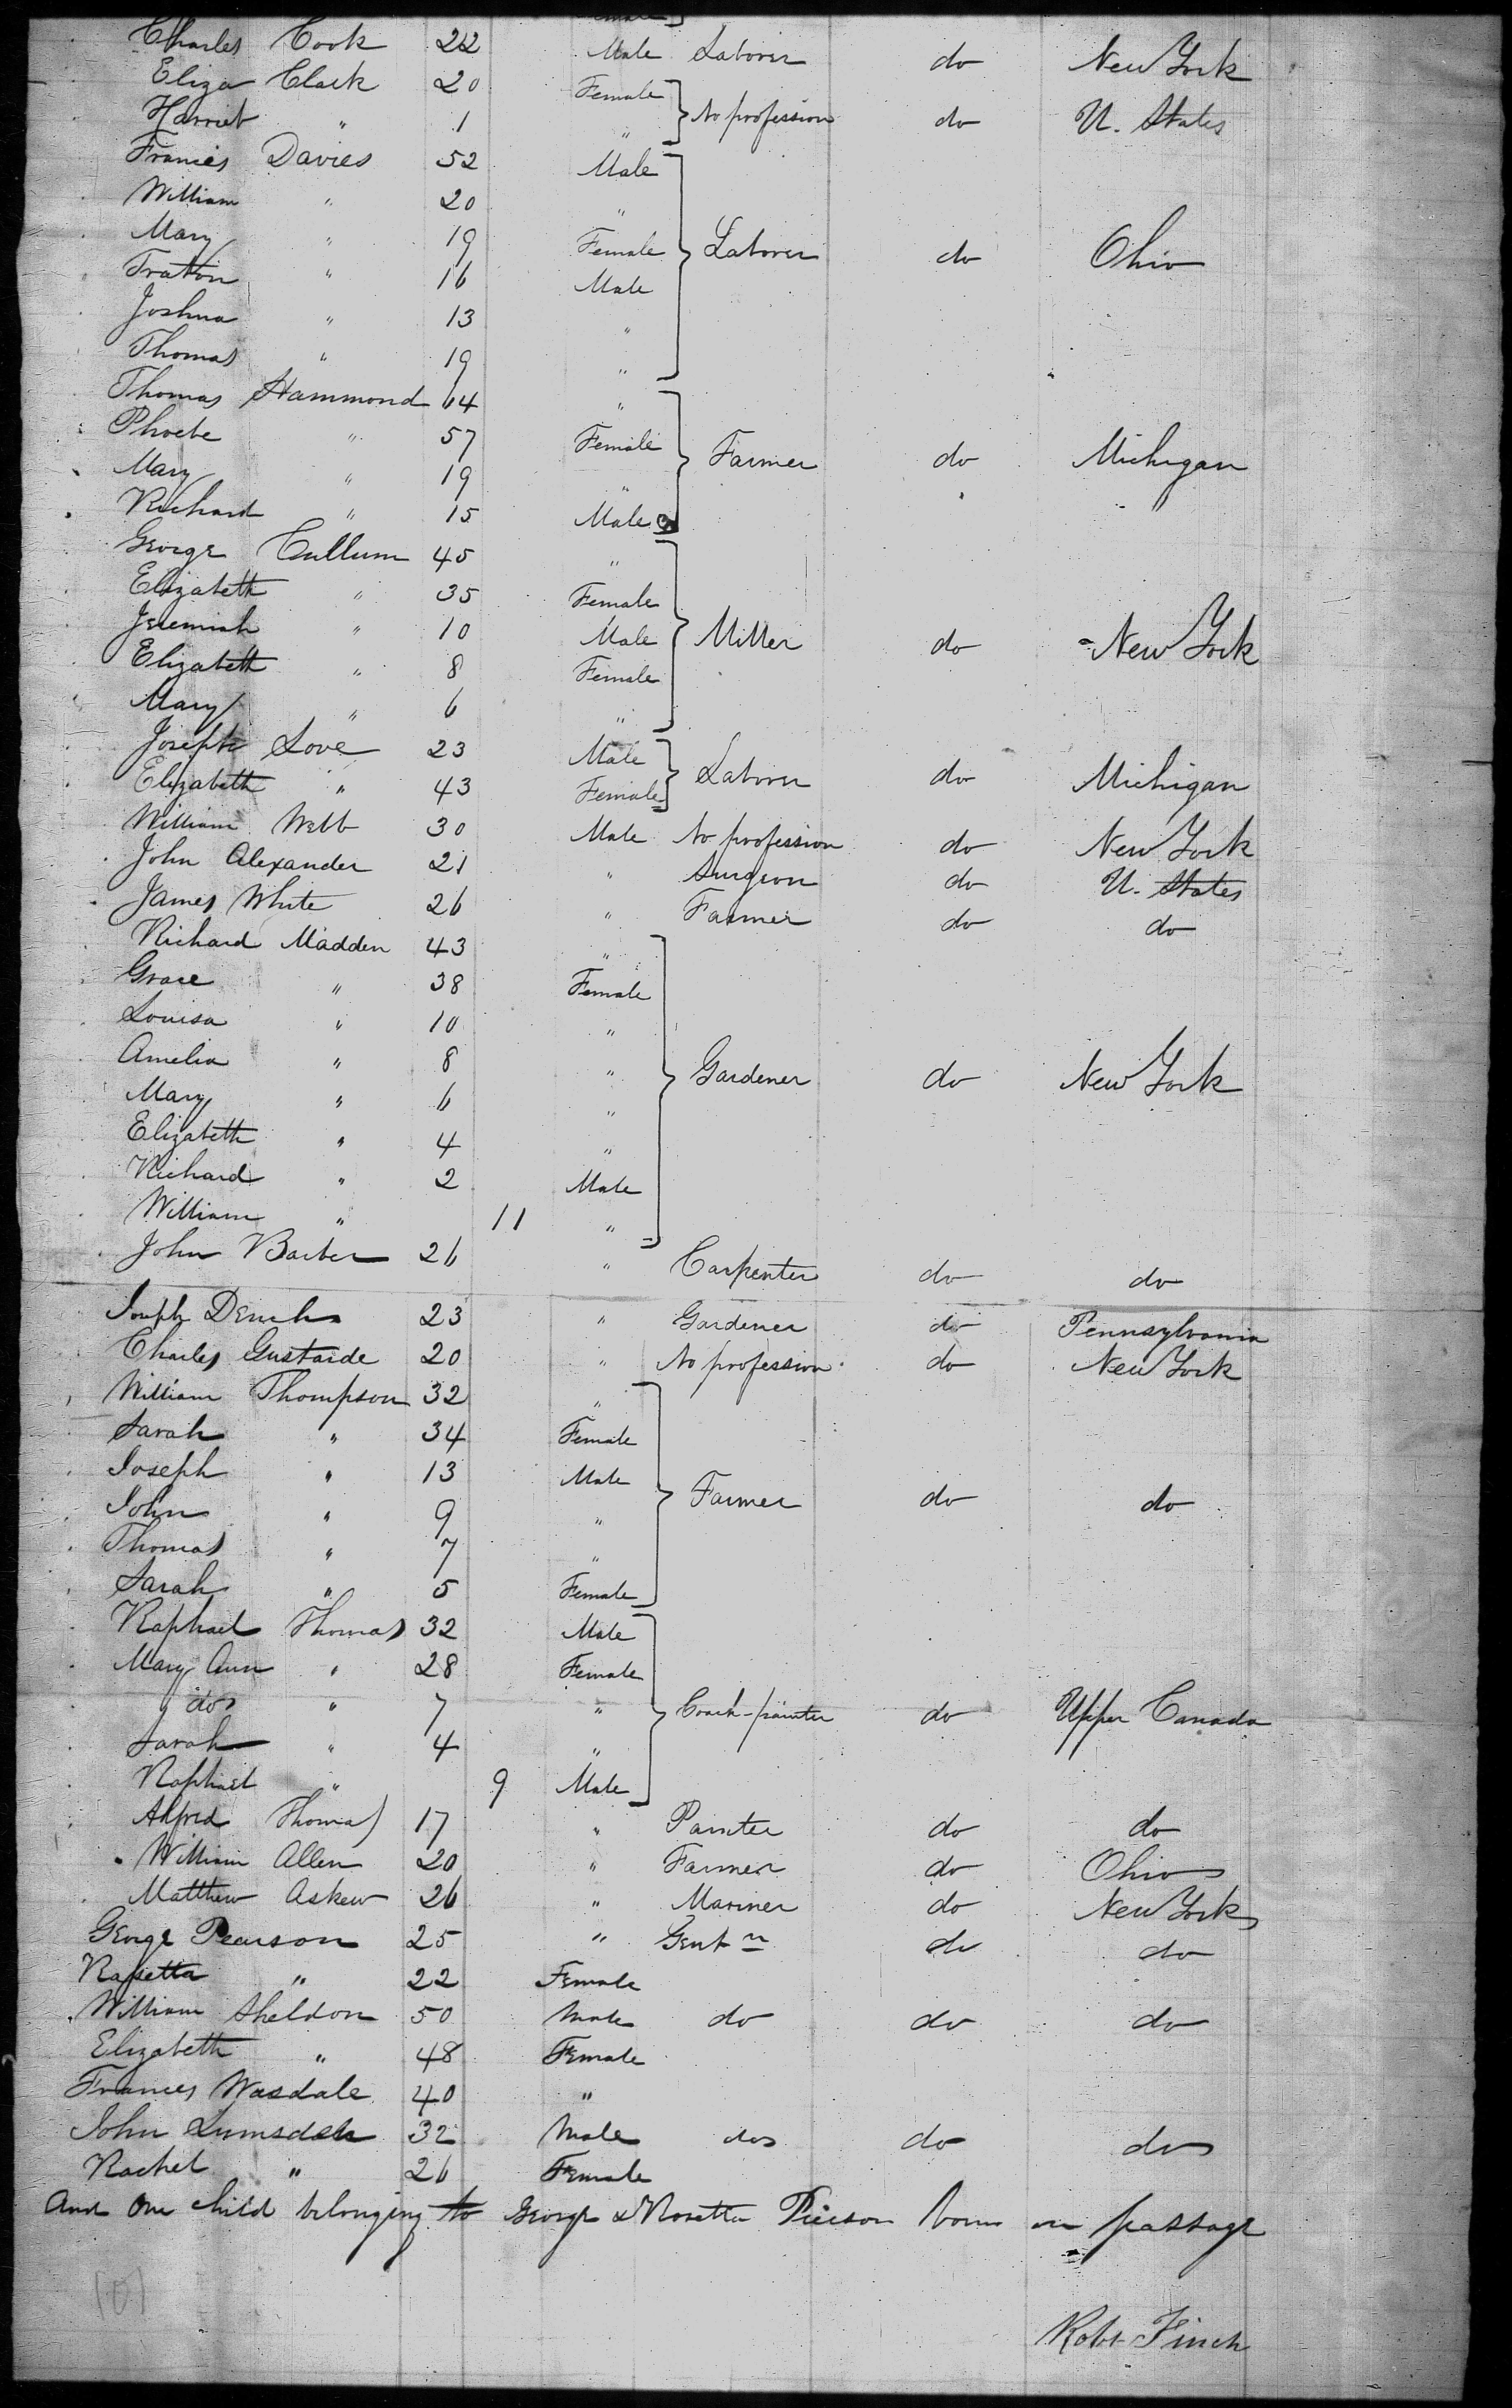 Charles Cook 22 Male Laborer do New York
Eliza Clark 20 Female No profession do U. States
Harriet " 1 "
Francis Davies 52 Male Laborer do Ohio
William " 20 "
Mary " 19 Female
Tratton " 16 Male
Joshua " 13 "
Thomas " 19 "
Thomas Hammond 64 " Farmer do Michigan
Phoebe " 57 Female
Mary " 19 "
Richard " 15 Male
George Cullum 45 " Miller do New York
Elizabeth " 35 Female
Jeremiah " 10 Male
Elizabeth " 8 Female
Mary " 6 "
Joseph Love 23 Male Laborer do Michigan
Elizabeth " 43 Female
William Webb 30 Male No profession do New York
John Alexander 21 " Surgeon do U. States
James White 26 " Farmer do do
Richard Madden 43 " Gardener do New York
Grace " 38 Female
Louisa " 10 "
Amelia " 8 "
Mary " 6 "
Elizabeth " 4 "
Richard " 2 Male
William " 11 "
John Barber 26 " Carpenter do do
Joseph 23 " Gardener do Pennsylvania
Charles Gustarde 20 " No profession do New York
William Thompson 32 " Farmer do do
Sarah " 34 Female
Joseph " 13 Male
John " 9 "
Thomas " 7 "
Sarah " 5 Female
Raphael Thomas 32 Male Coach-painter do Upper Canada
Mary Ann " 28 Female
do " 7 "
Sarah " 4 "
Raphael " 9 Male
Alfred Thomas 17 " Painter do do
William Allen 20 " Farmer do Ohio
Matthew Askew 26 " Mariner do New York
George Pearson 25 " Gent n do do
Rosetta " 22 Female
William Sheldon 50 Male do do do
Elizabeth " 48 Female
Frances Wasdale 40 "
John Lumsden 32 Male do do do
Rachel " 26 Female
And One child belonging to George & Rosetta Pierson born on passage
(0)
Robt Finch